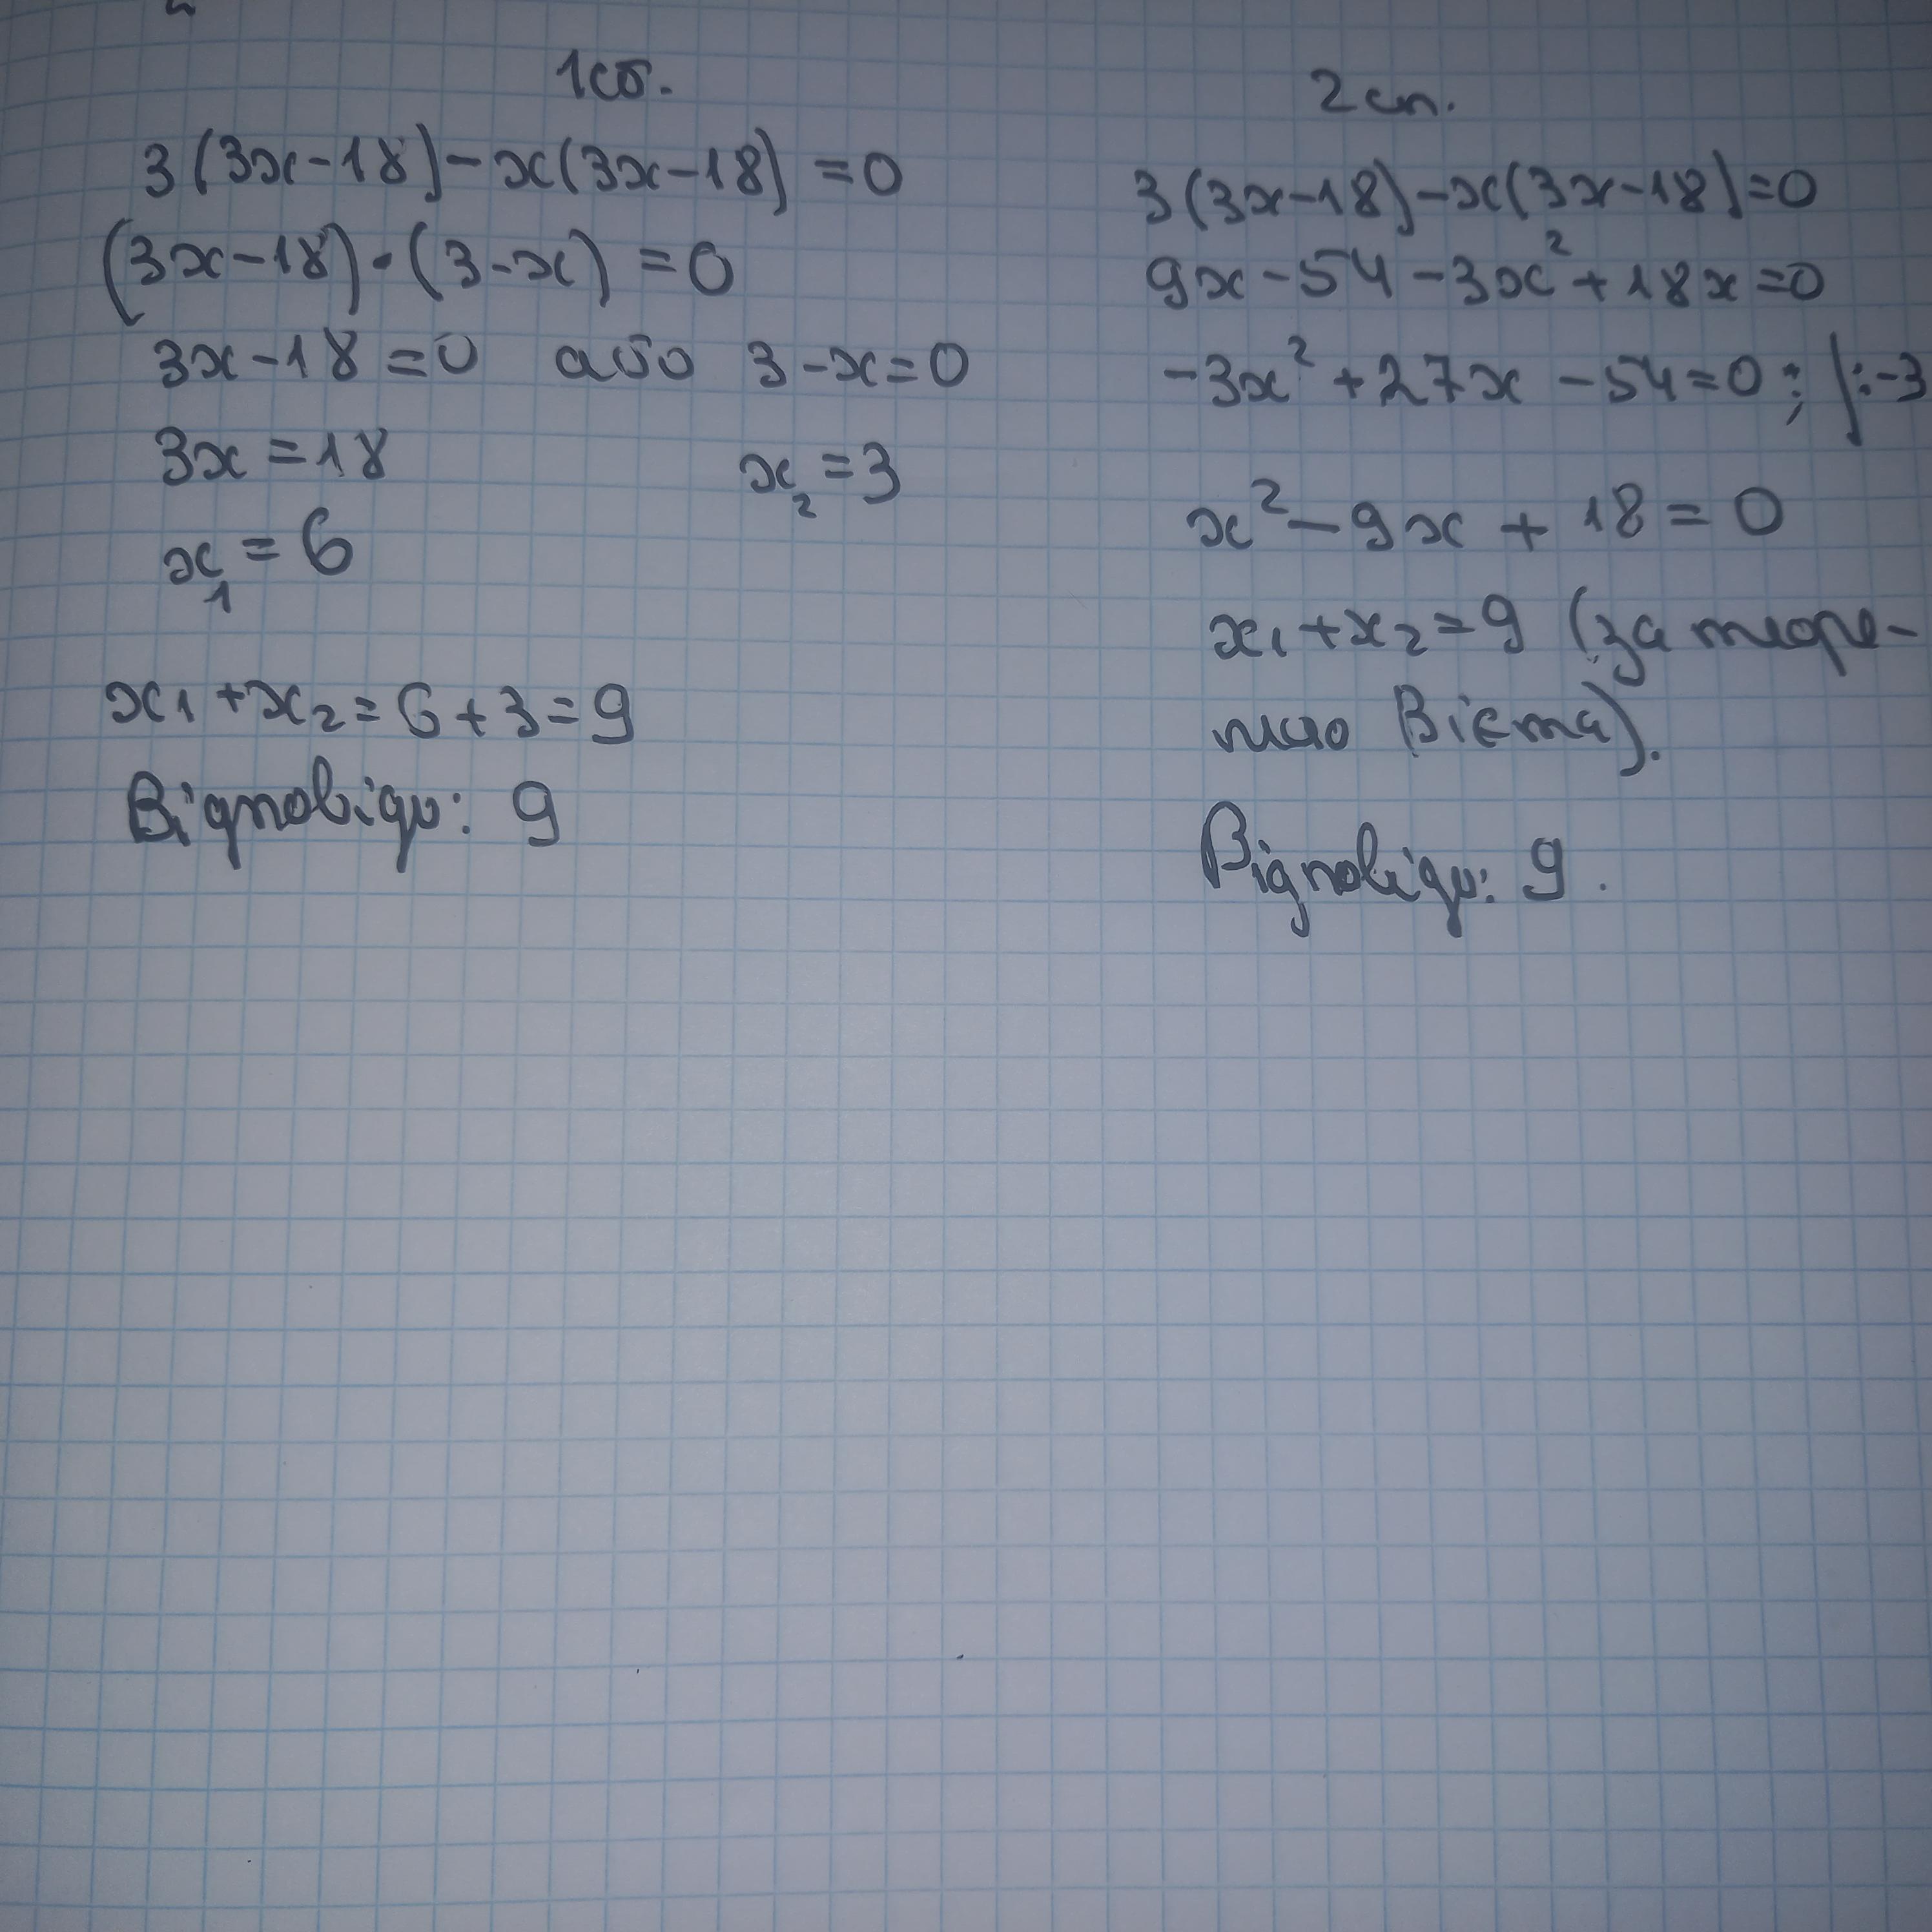 1сп.
3(3x-18)-x(3x-18)=0
(3x-18)·(3-x)=0
3x-18=0 або 3-x=0
3x=18 x₂=3
x₁=6
x₁+x₂=6+3=9
Відповідь: 9
2сп.
3(3x-18)-x(3x-18)=0
9x-54-3x²+18x=0
-3x²+27x-54=0; |:-3
x²-9x+18=0
x₁+x₂=9 (за теоре-
мою Вієта).
Відповідь: 9.